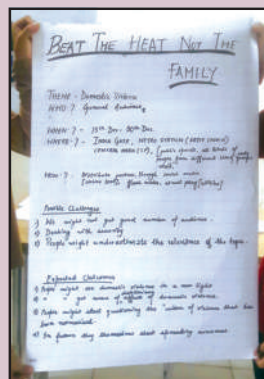 BEAT THE HEAT NOT THE
FAMILY
THEME - Domestic Violence
WHO? - General Audience,
WHEN? - 15th Dec - 30th Dec
WHERE? - INDIA GATE, METRO STATION
CENTRAL PARK (CP), [public spaces, all kinds of
people from different
HOW? - Distribute posters, through social media
flash mobs,
Possible Challenges
1) We might not get good number of audience.
2) Dealing with security
3) People might underestimate the relevance of the topic.
Expected Outcomes
1) People might see domestic violence in a new light
2) " " get aware of effects of domestic violence.
3) People might start questioning the culture of violence that has
been normalised.
4) In future they themselves start spreading awareness.